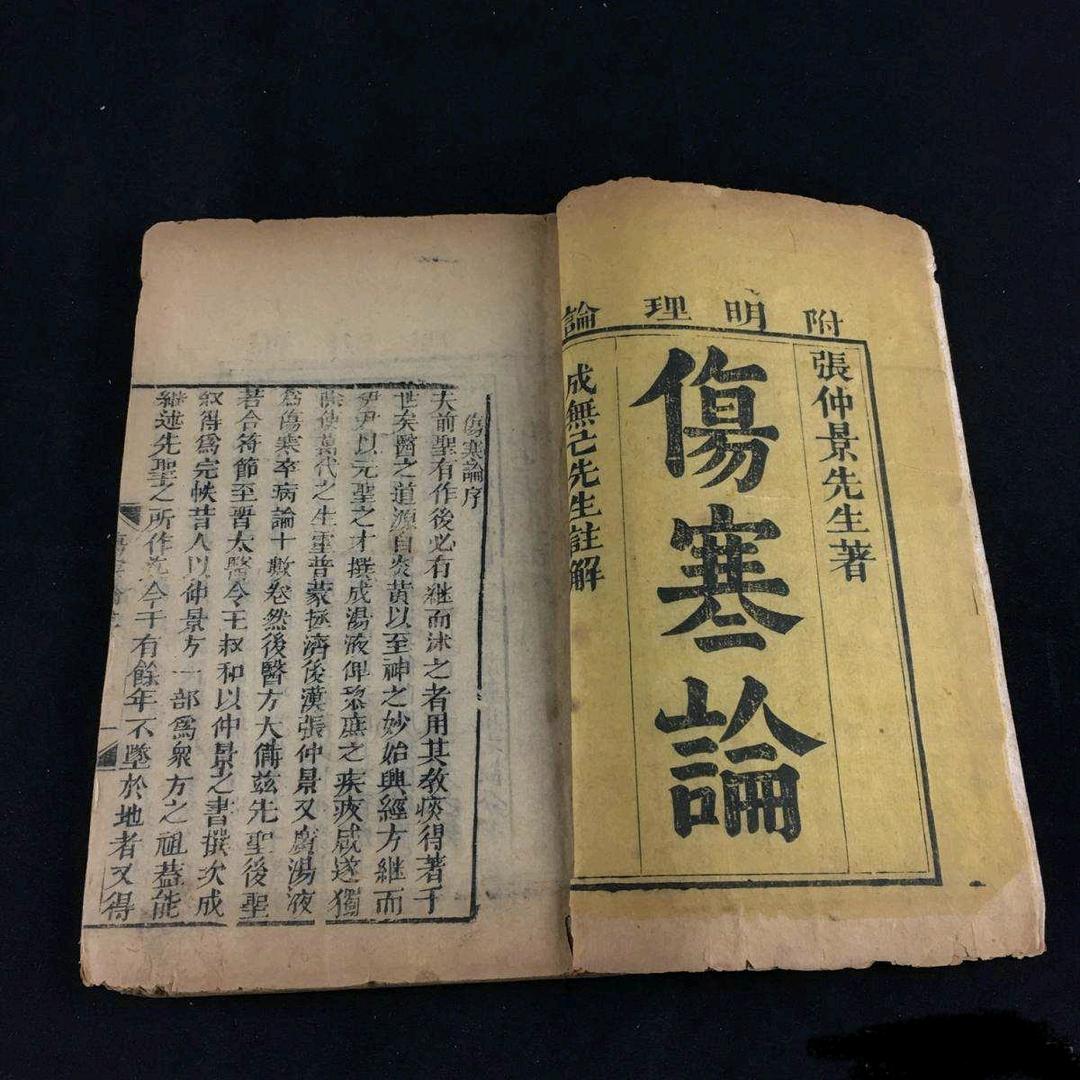 附明理論
張仲景先生著
傷寒論
成無己先生註解
傷寒論序
夫前聖有作後必有継而沭之者用其教痰得著于
世矣醫之道源自炎黃以至神之妙始興經方継而
伊尹以元聖之才撰成湯液俾黎庶之疾疢咸遂獨
除使萬代之生靈普蒙拯濟後漢張仲景又廣湯液
爲傷寒卒病論十數卷然後醫方大備茲先聖後聖
若合符節至晋太醫令王叔和以仲景之書撰次成
叙得爲完帙昔人以仲景方一部爲衆方之祖蓋能
継述先聖之所作迄今千有餘年不墜於地者又得